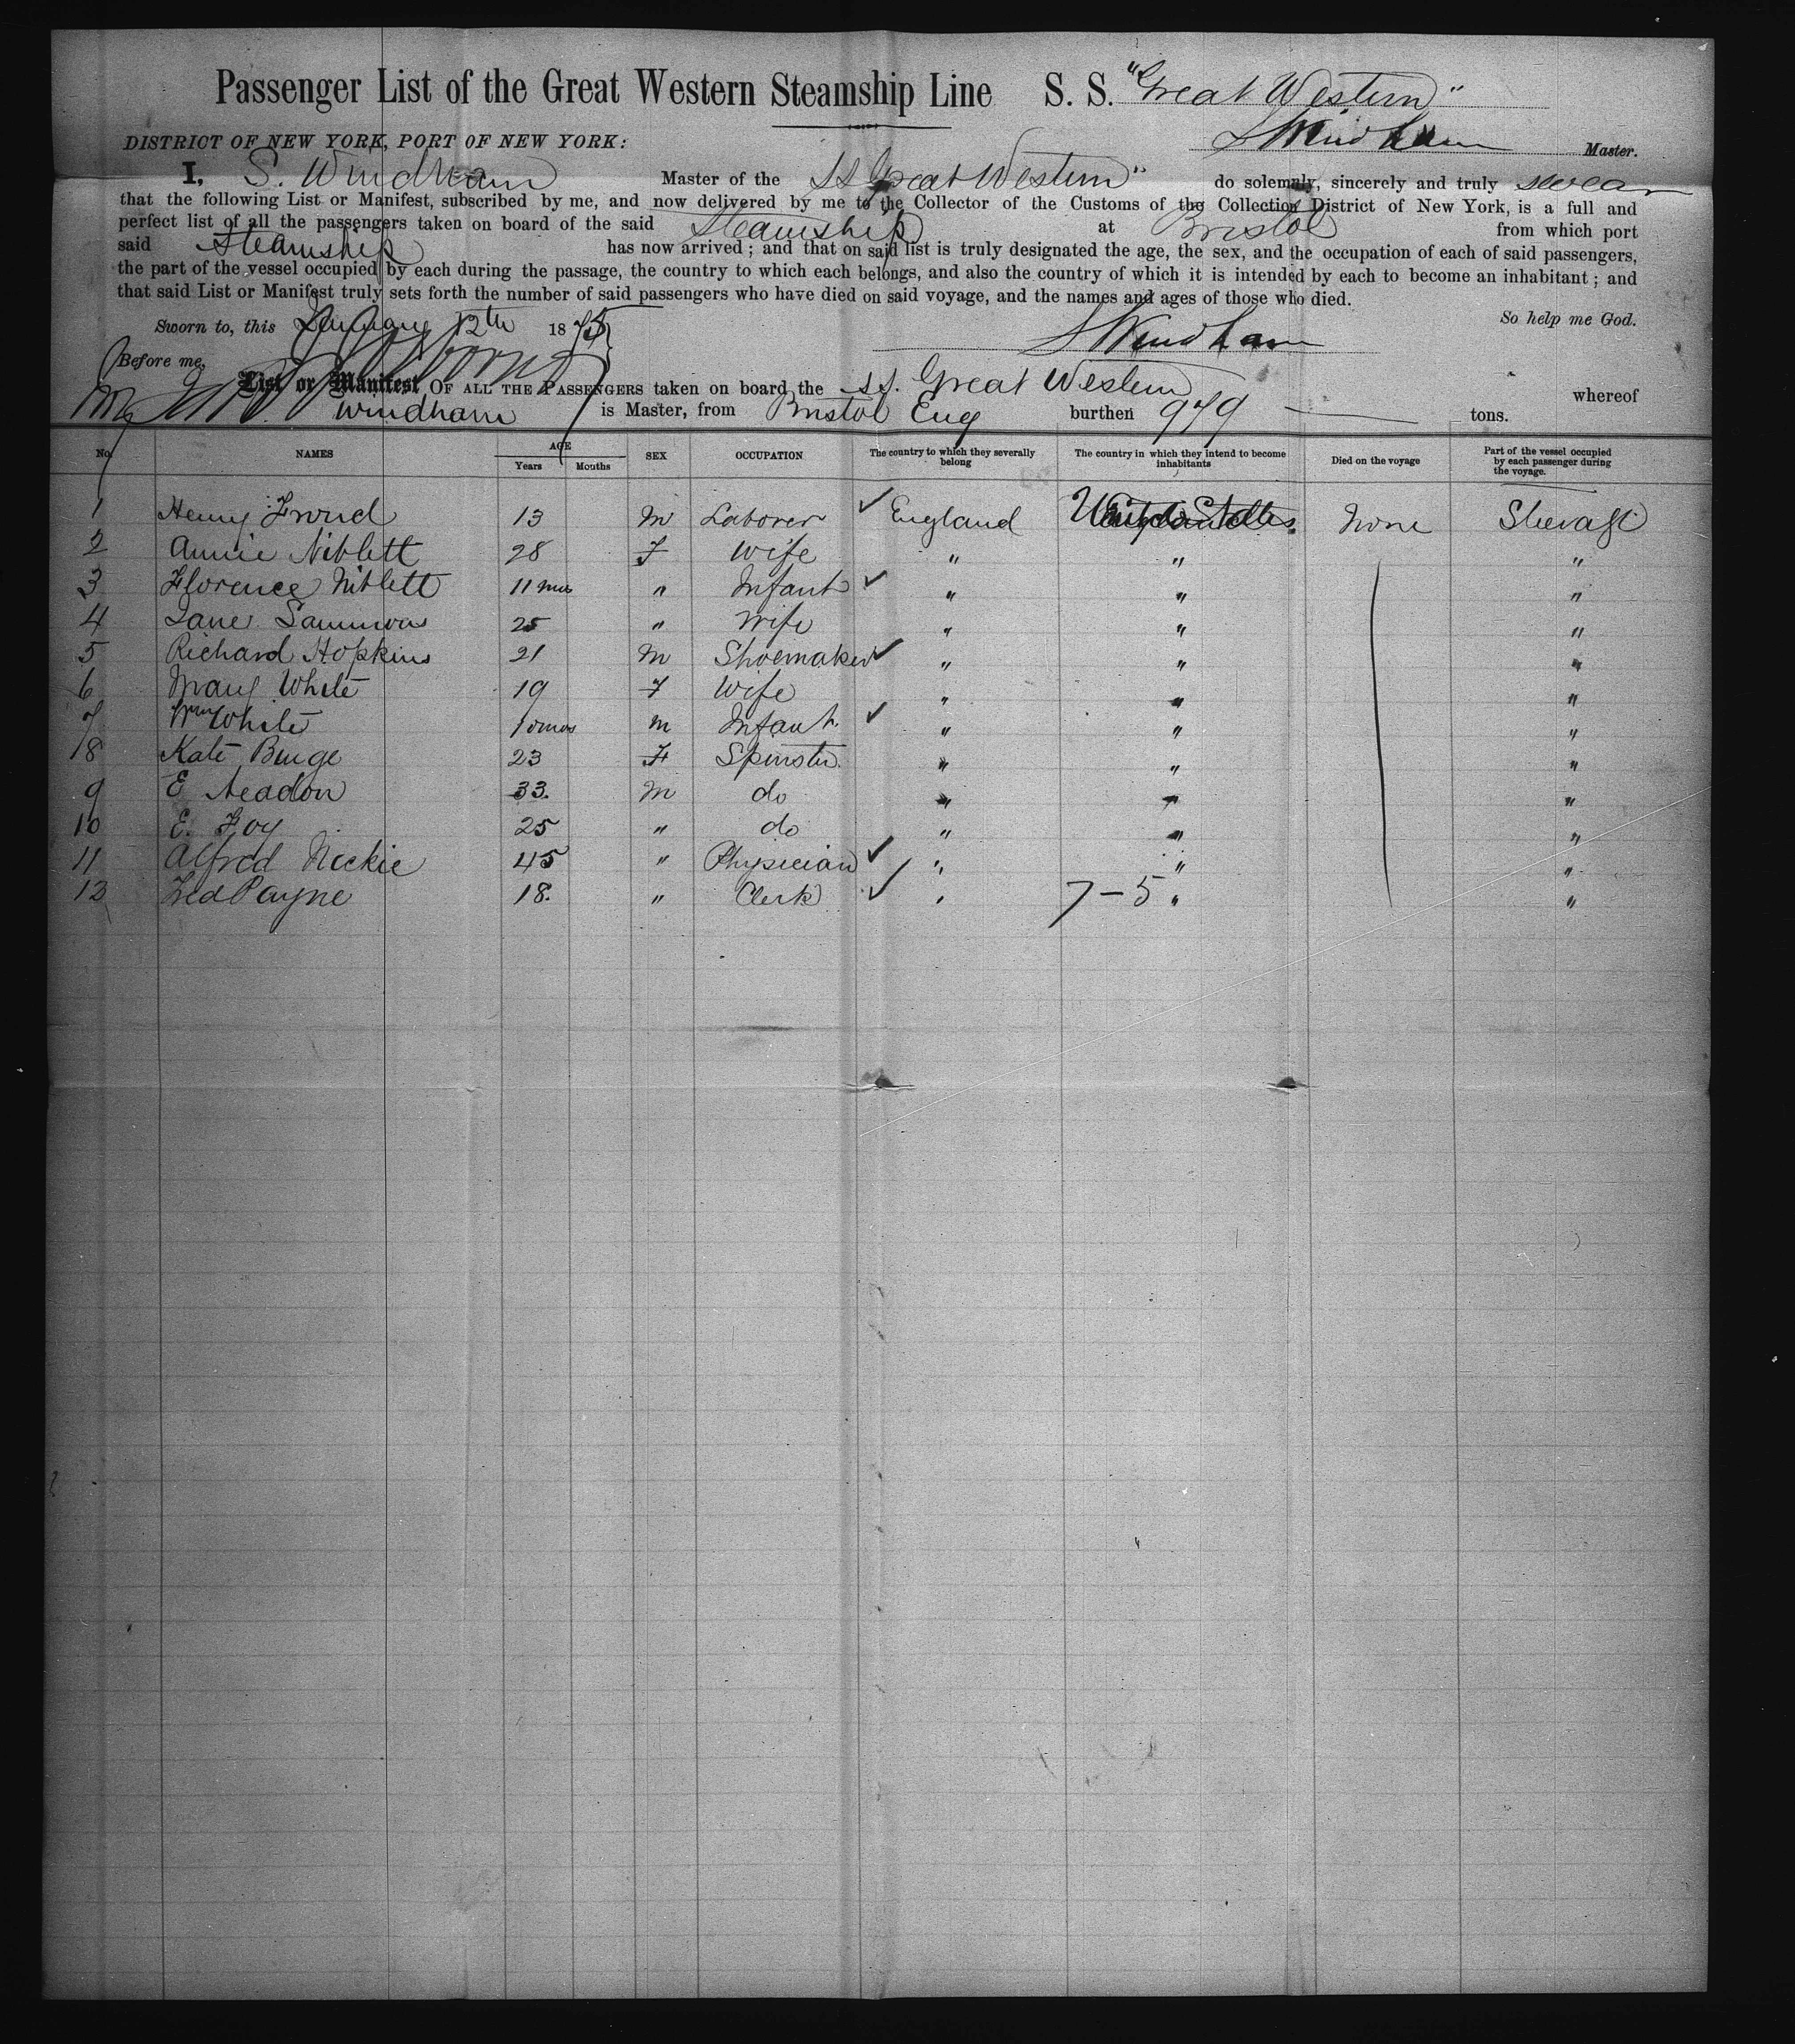 Passenger List of the Great Western Steamship Line S. S. "Great Western"
DISTRICT OF NEW YORK, PORT OF NEW YORK: S Windham Master.
I, S. Windham Master of the SS Great Western" do solemnly, sincerely and truly swear
that the following List or Manifest, subscribed by me, and now delivered by me to the Collector of the Customs of the Collection District of New York, is a full and
perfect list of all the passengers taken on board of the said Steamship at Bristol from which port
said Steamship has now arrived; and that on said list is truly designated the age, the sex, and the occupation of each of said passengers,
the part of the vessel occupied by each during the passage, the country to which each belongs, and also the country of which it is intended by each to become an inhabitant; and
that said List or Manifest truly sets forth the number of said passengers who have died on said voyage, and the names and ages of those who died.
Sworn to, this January 12th 1875 So help me God.
S Windham
Before me,
List or Manifest OF ALL THE PASSENGERS taken on board the SS. Great Western whereof
Windham is Master, from Bristol Eng burthen 979 tons.
No. NAMES AGE Years Months SEX OCCUPATION The country to which they severally belong The country in which they intend to become inhabitants Died on the voyage Part of the vessel occupied by each passenger during the voyage.
1 Henry 13 M Laborer ✓ England United States None Steerage
2 Annie Niblett 28 F Wife " " "
3 Florence Niblett 11 mos " Infant ✓ " " "
4 Jane Sammons 25 " Wife " " "
5 Richard Hopkins 21 M Shoemaker ✓ " " "
6 Mary White 19 F Wife " " "
7 Wm White 10 mos m Infant ✓ " " "
18 Kate Binge 23 F Spinster " " "
9 E Headon 33. M do " " "
10 E. Foy 25 " do " " "
11 Alfred Neckie 45 " Physician ✓ " " "
12 Fred Payne 18. " Clerk ✓ " 7-5 " "